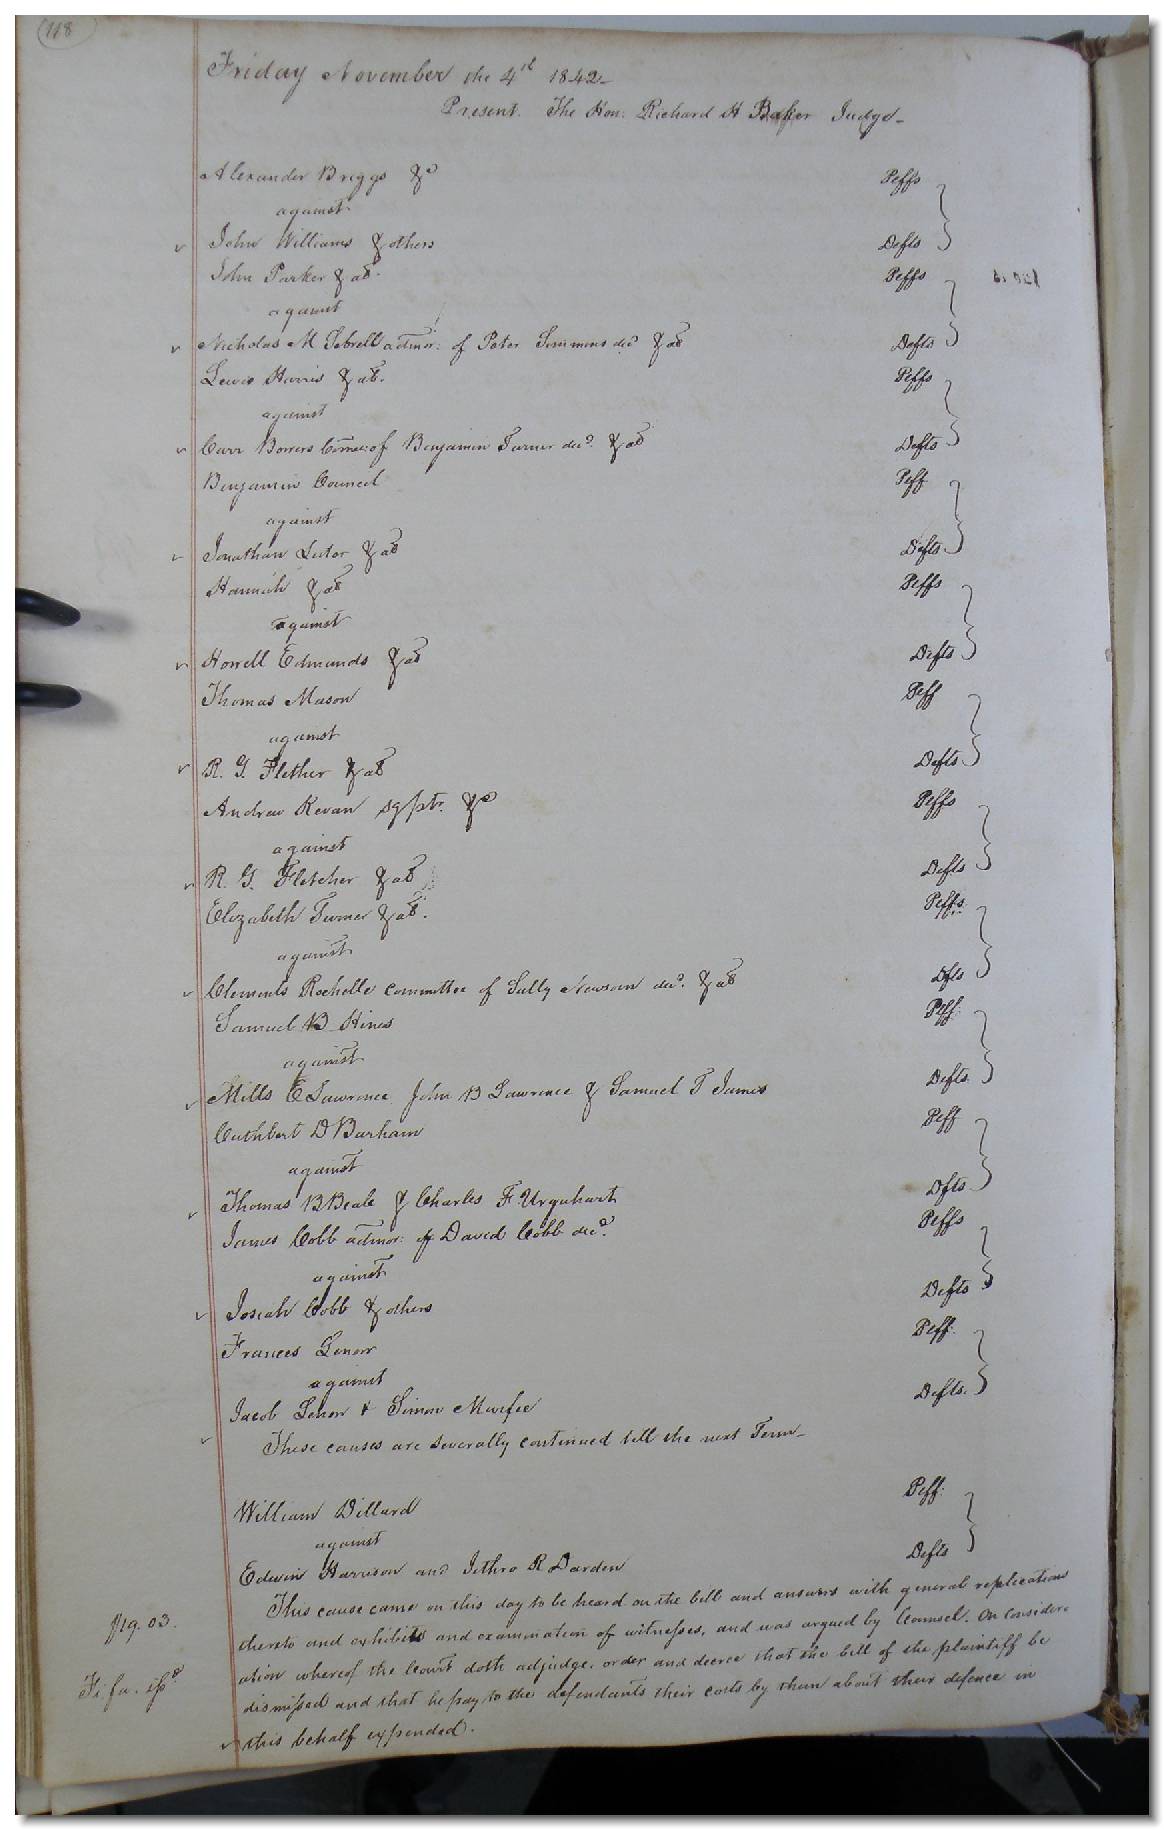 118
Friday November the 4th 1842-
Present. The Hon: Richard H Baker Judge-
Alexander Briggs &c Peffs
against
John Williams & others Defts
John Parker & als. Peffs
against
Nicholas M Sebrell admor: of Peter Simmons decd & als Defts
Lewis Harris & als. Peffs
against
Carr Bowers Comee: of Benjamin Turner decd. & als Defts
Benjamin Council Peff
against
Jonathan Lutor & als Defts
Hannah & als Peffs
against
Howell Edmunds & als Defts
Thomas Mason Peff
against
R. G. Flether & als Defts
Andrew Kevan &c Peffs
against
R. G. Fletcher & als Defts
Elizabeth Turner & als. Peffs
against
Clements Rochelle committee of Sally Newsom decd. & als Dfts
Samuel B Hines Peff.
against
Mills E Lawrence John B Lawrence & Samuel T James Defts
Cuthbert D Barham Peff
against
Thomas B Beale & Charles F. Urquhart Dfts
James Cobb admor: of David Cobb decd. Peffs
against
Josiah Cobb & others Defts
Frances Lenow Peff.
against
Jacob Lenow & Simon Murfee Defts.
These causes are severally continued till the next Term-
William Dillard Peff.
against
Edwin Harrison and Jethro R Darden Defts
This cause came on this day to be heard on the bill and answers with general replications
thereto and exhibits and examination of witnesses, and was argued by Counsel. On consider-
ation whereof the Court doth adjudge, order and decree that the bill of the plaintiff be
dismissed and that he pay to the defendants their costs by them about their defence in
this behalf expended.
$19.03.
Fi. fa. issd